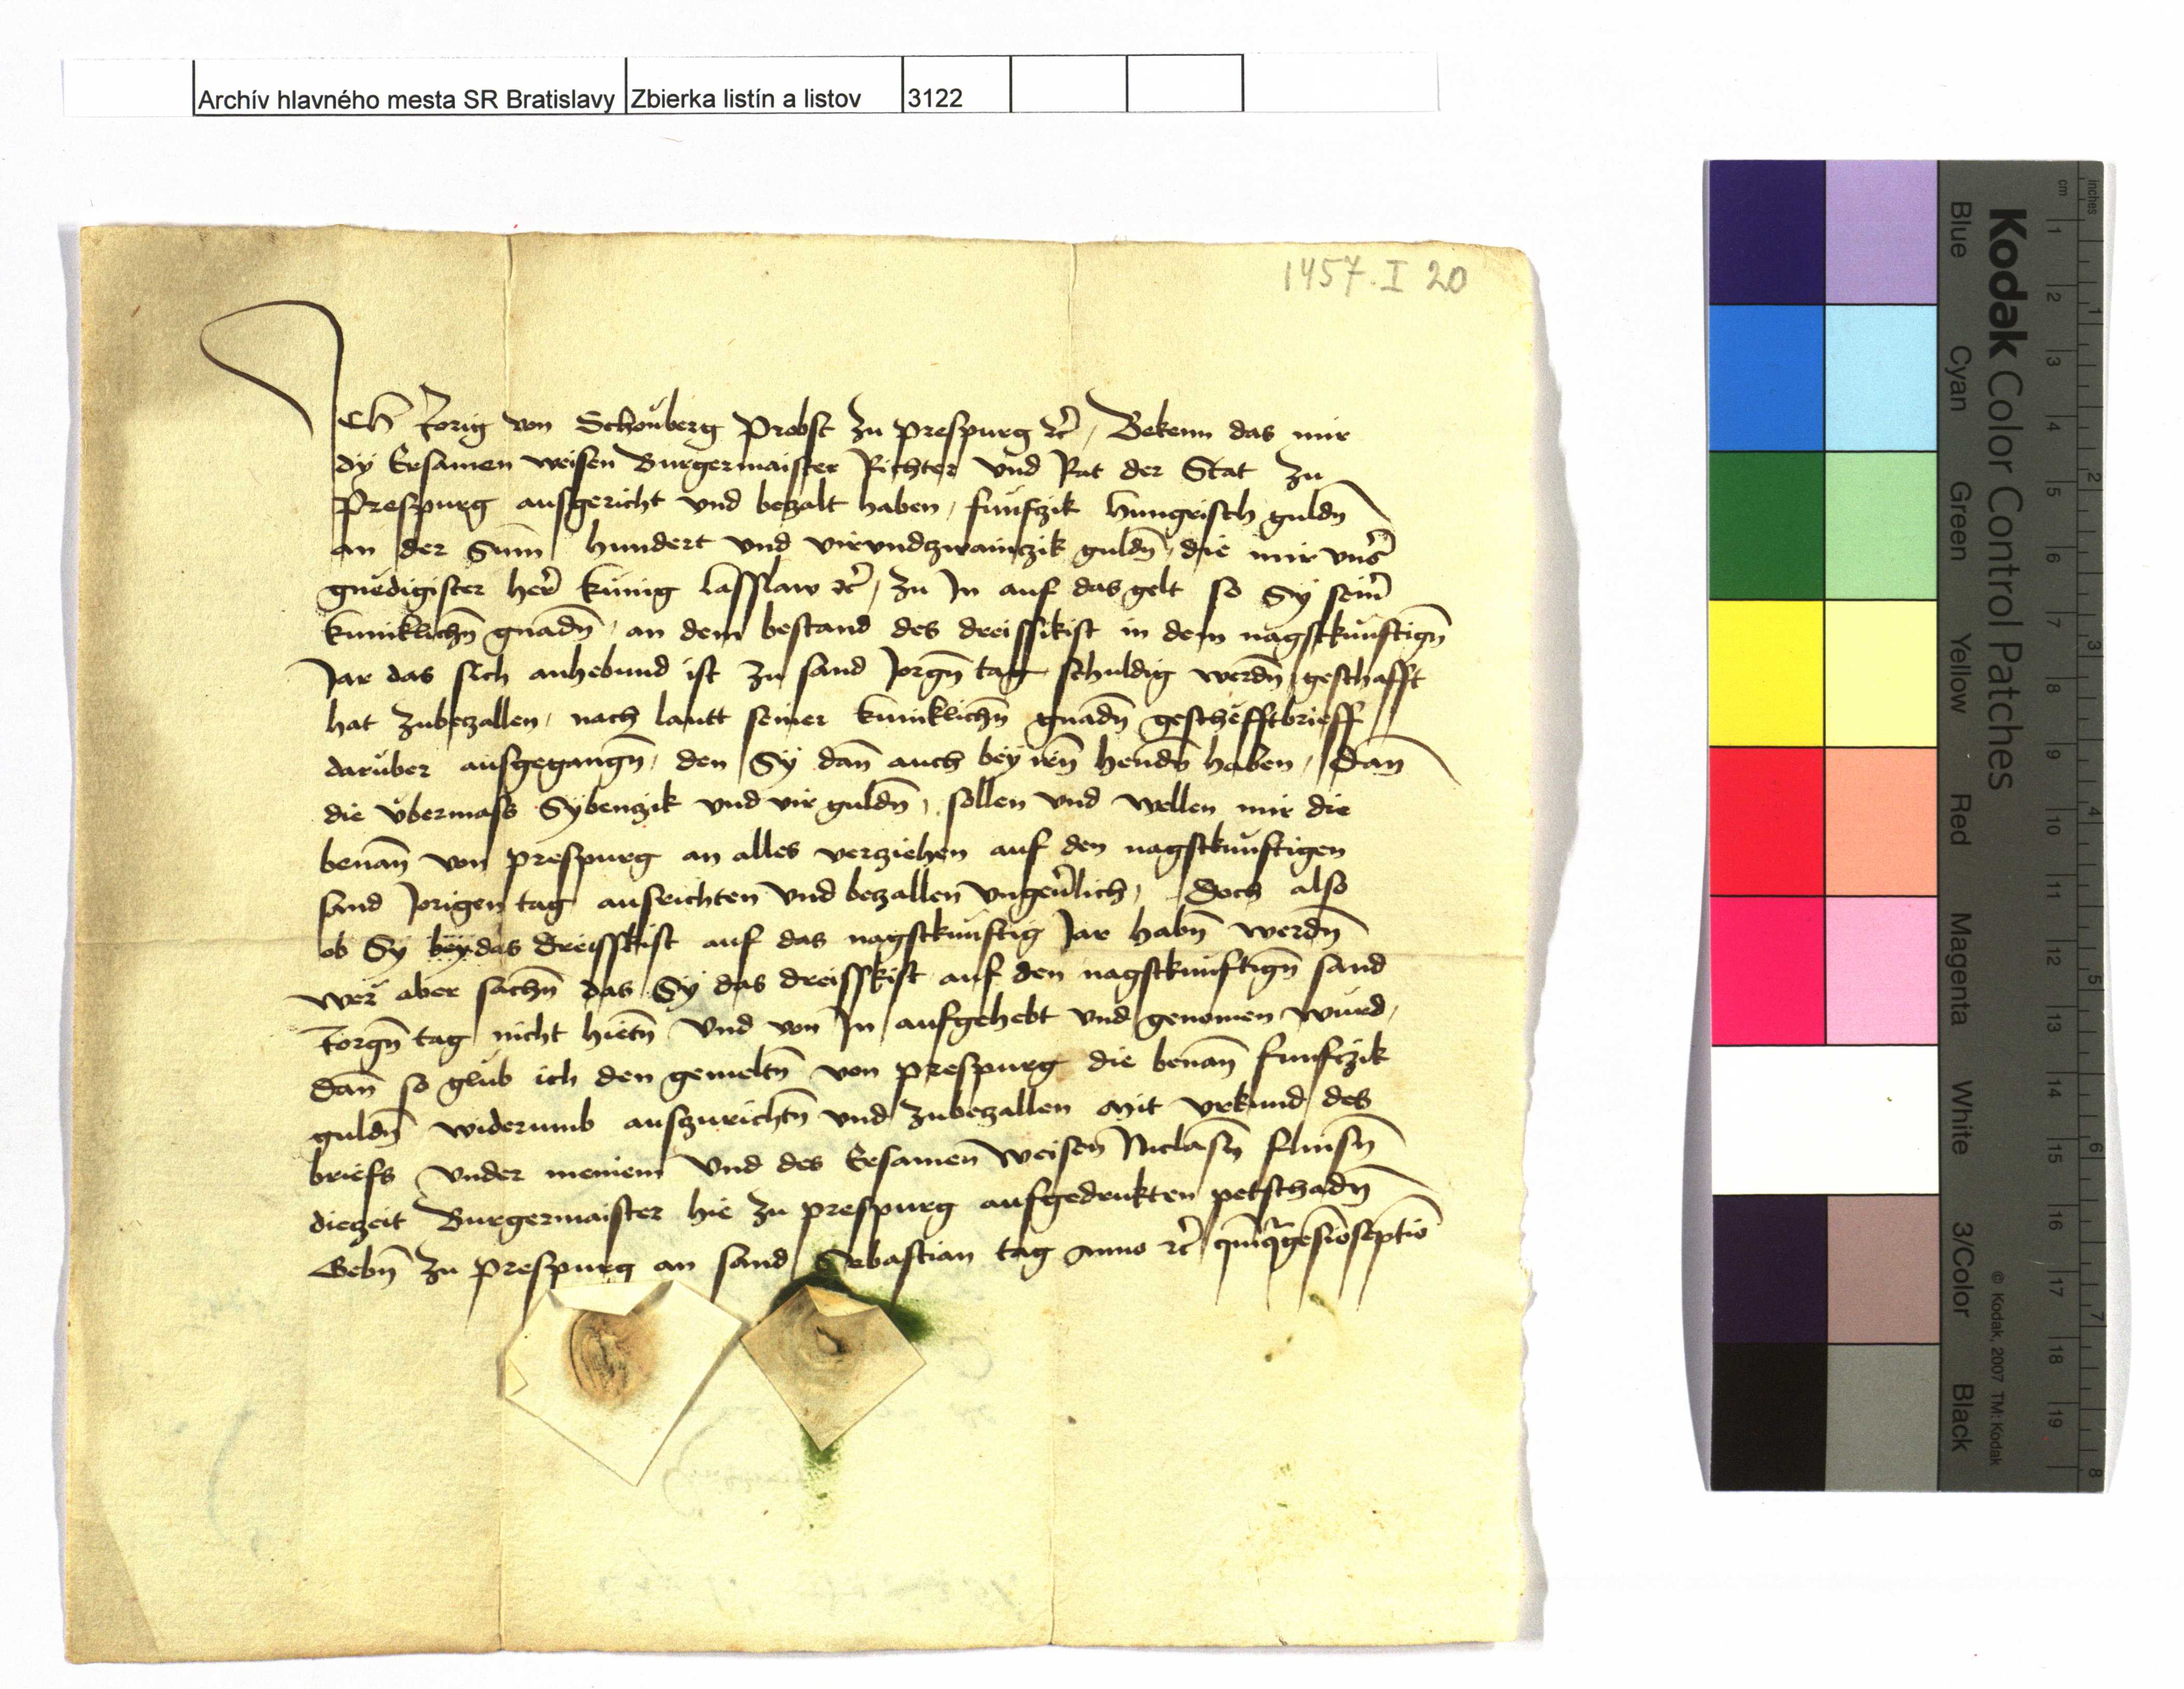 Archív hlavného mesta SR Bratislavy Zbierka listín a listov 3122
1457. I 20
Ich Jorig von Schonberg Probst zu prespurg etc̃, Bekenn das mir
dy Ersamen weisen Burgermaister Richter vnd Rat der Stat zu
Prespurg ausgericht vnd betzalt haben, fünfczik hungrisch guldn̄
an der Sum̄ hundert vnd virundzwainczik guldn̄, die mir vnser̃
gnedigister her̃ künig lasslaw etc̃, zu In auf das gelt so Sy sein̄
kuniklichn̄ gnadn̄, an dem bestand des dreissikist in dem nagstkunftign̄
Jar das sich anhebund ist zu sand Jorgn̄ tag schuldig werdn̄ geschafft
hat zubetzallen, nach lautt seiner kuniklichn̄ gnadn̄ geschefftbrieff
darüber ausgegangn̄, den Sy dan̄ auch bey irn̄ hendn̄ haben, Dan̄
die vbermass Sybenzik vnd vir guldn̄, sollen vnd wellen mir die
benan̄ von prespurg an alles verziehen auf den nagstkunftigen
sand Jorigen tag ausrichten vnd betzallen vngeũlich, Doch also
ob Sy bey das dreisskist auf das nagstkunftig Jar habn̄ werdn̄
wer aber sachn̄ das Sy das dreisskist auf den nagstkunftign̄ sand
Jorgn̄ tag nicht hietn̄ vnd von In aufgehebt vnd genomen wurd,
Dan̄ so glub ich den gemeltn̄ von prespurg die benan̄ funfczik
guldn̄ widerumb auszurichtn̄ vnd zubetzallen Mit vrkund des
briefs vnder meniem vnd des Ersamen weisen Niclasn̄ flinsn̄
dietzeit Burgermaister hie zu prespurg aufgedrukten petschadn̄
Gebn̄ zu Prespurg an sand Sebastian tag Anno etc̃ quīquagesīoseptīo
Kodak Color Control Patches
Blue Cyan Green Yellow Red Magenta White 3/Color Black
© Kodak, 2007 TM: Kodak
inches 1 2 3 4 5 6 7 8
cm 1 2 3 4 5 6 7 8 9 10 11 12 13 14 15 16 17 18 19